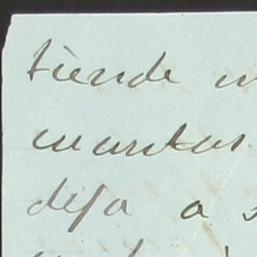 tiende
cuantas
deja a